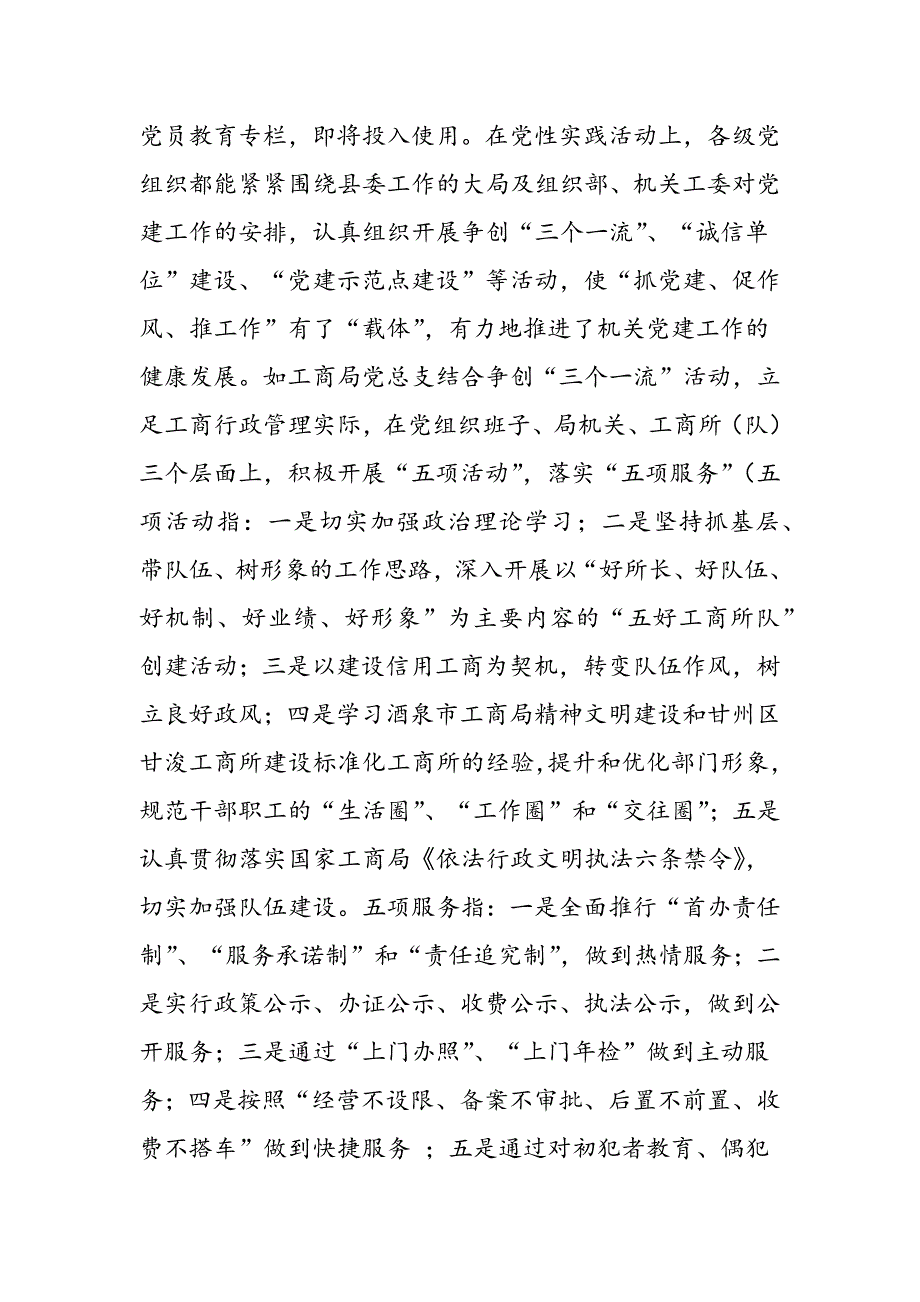 党员教育专栏，即将投入使用。在党性实践活动上，各级党
组织都能紧紧围绕县委工作的大局及组织部、机关工委对党
建工作的安排，认真组织开展争创“三个一流”、“诚信单
位”建设、“党建示范点建设”等活动，使“抓党建、促作
风、推工作”有了“载体”，有力地推进了机关党建工作的
健康发展。如工商局党总支结合争创“三个一流”活动，立
足工商行政管理实际，在党组织班子、局机关、工商所（队）
三个层面上，积极开展“五项活动”，落实“五项服务”（五
项活动指：一是切实加强政治理论学习；二是坚持抓基层、
带队伍、树形象的工作思路，深入开展以“好所长、好队伍、
好机制、好业绩、好形象”为主要内容的“五好工商所队”
创建活动；三是以建设信用工商为契机，转变队伍作风，树
立良好政风；四是学习酒泉市工商局精神文明建设和甘州区
甘浚工商所建设标准化工商所的经验，提升和优化部门形象，
规范干部职工的“生活圈”、“工作圈”和“交往圈”；五是
认真贯彻落实国家工商局《依法行政文明执法六条禁令》，
切实加强队伍建设。五项服务指：一是全面推行“首办责任
制”、“服务承诺制”和“责任追究制”，做到热情服务；二
是实行政策公示、办证公示、收费公示、执法公示，做到公
开服务；三是通过“上门办照”、“上门年检”做到主动服
务；四是按照“经营不设限、备案不审批、后置不前置、收
费不搭车”做到快捷服务 ；五是通过对初犯者教育、偶犯